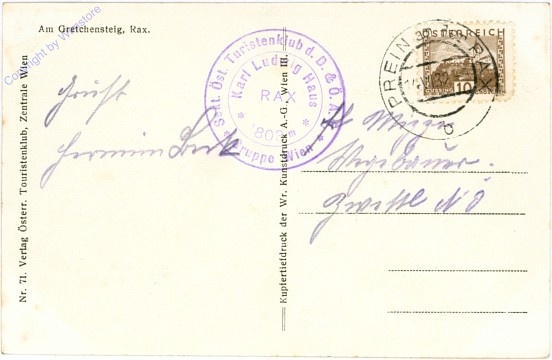 Copyright by Wertstore
Am Gretchensteig, Rax.
Nr. 71. Verlag Österr. Touristenklub, Zentrale Wien
Kupfertiefdruck der Wr. Kunstdruck A.-G., Wien III.
Sekt. Öst. Turistenklub d. D. & Ö. A. V.
Karl Ludwig Haus
RAX
1803 m
Gruppe Wien
ÖSTERREICH
10
PREIN RAX
Gruß
Hermine
Zwettl N Ö